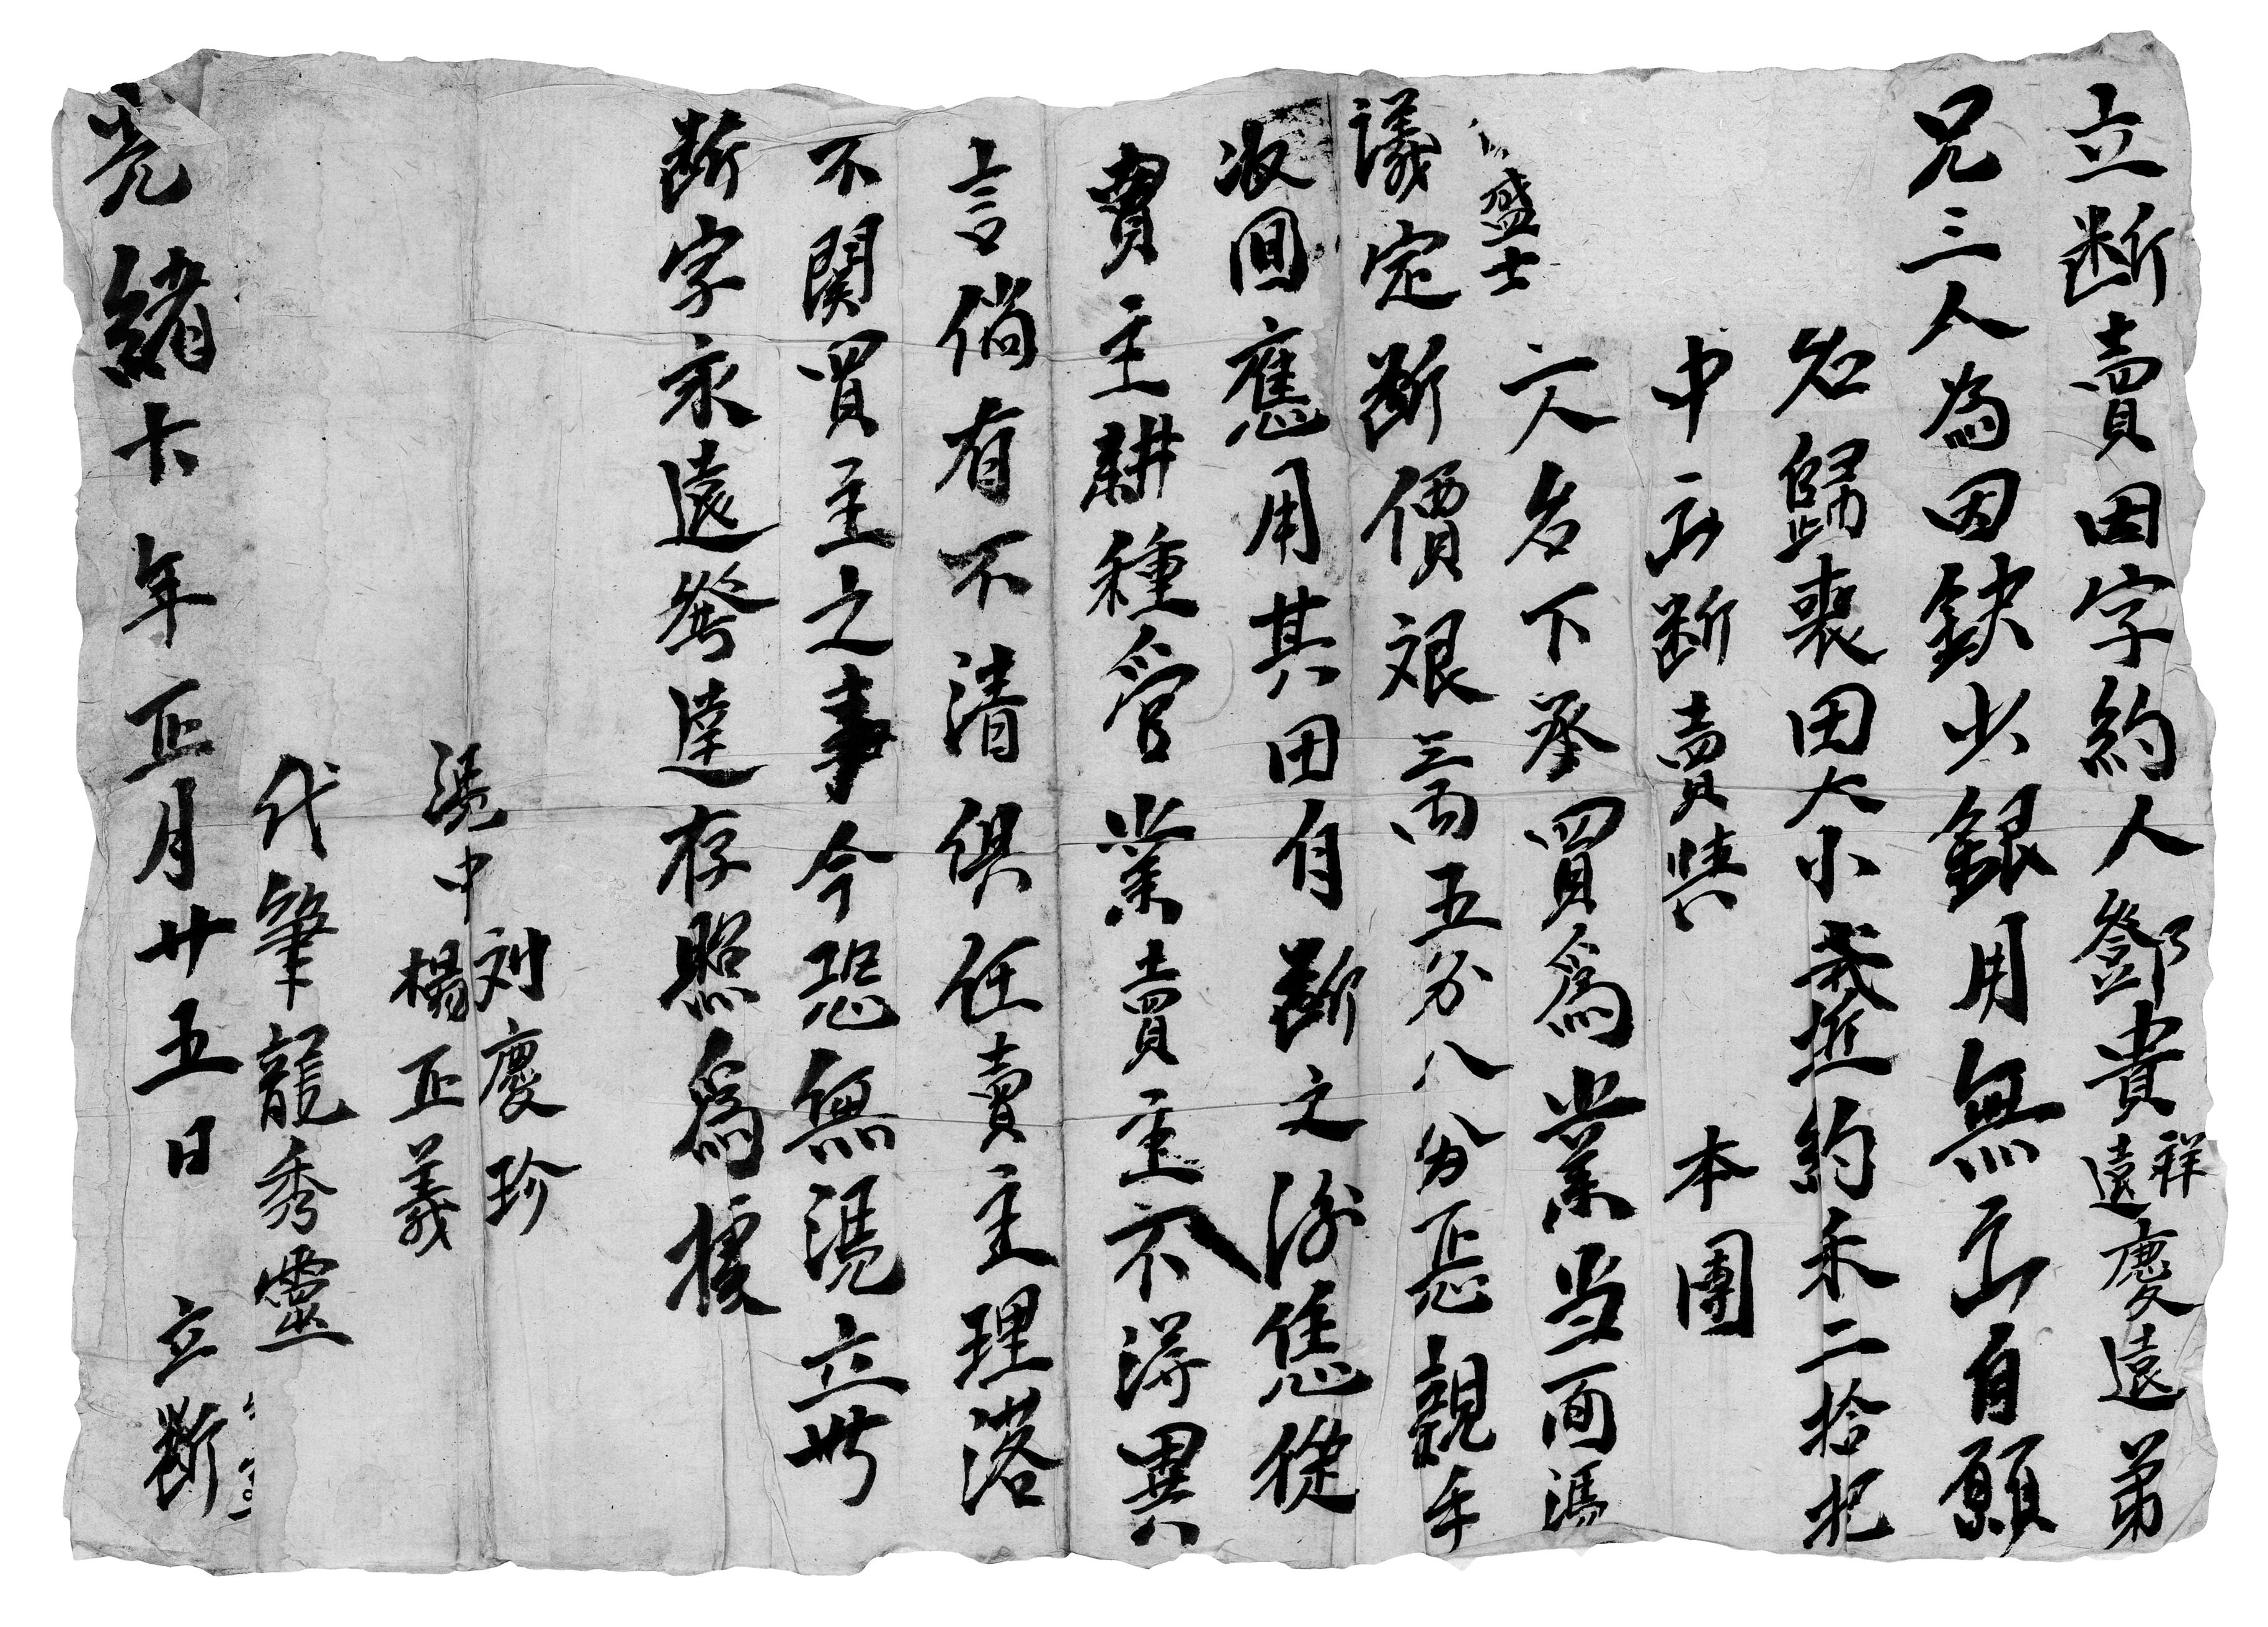 立断賣田字約人鄧貴祥遠慶遠弟
兄三人為因缺少銀用無亐自願
名歸喪田大小貳坵約禾二拾把
中亐断賣與 本團
盛士
六名下承買為業当面馮
議定断價艰三両五分八分正親手
收囬應用其田自断之後恁從
買主耕種管業賣主不淂異
言倘有不清俱任賣主理落
不関買主之事今恐無馮立此
断字永遠發達存照為據
馮中 刘慶珍
楊正義
代筆龍秀靈
光緒十年正月廿五日 立断